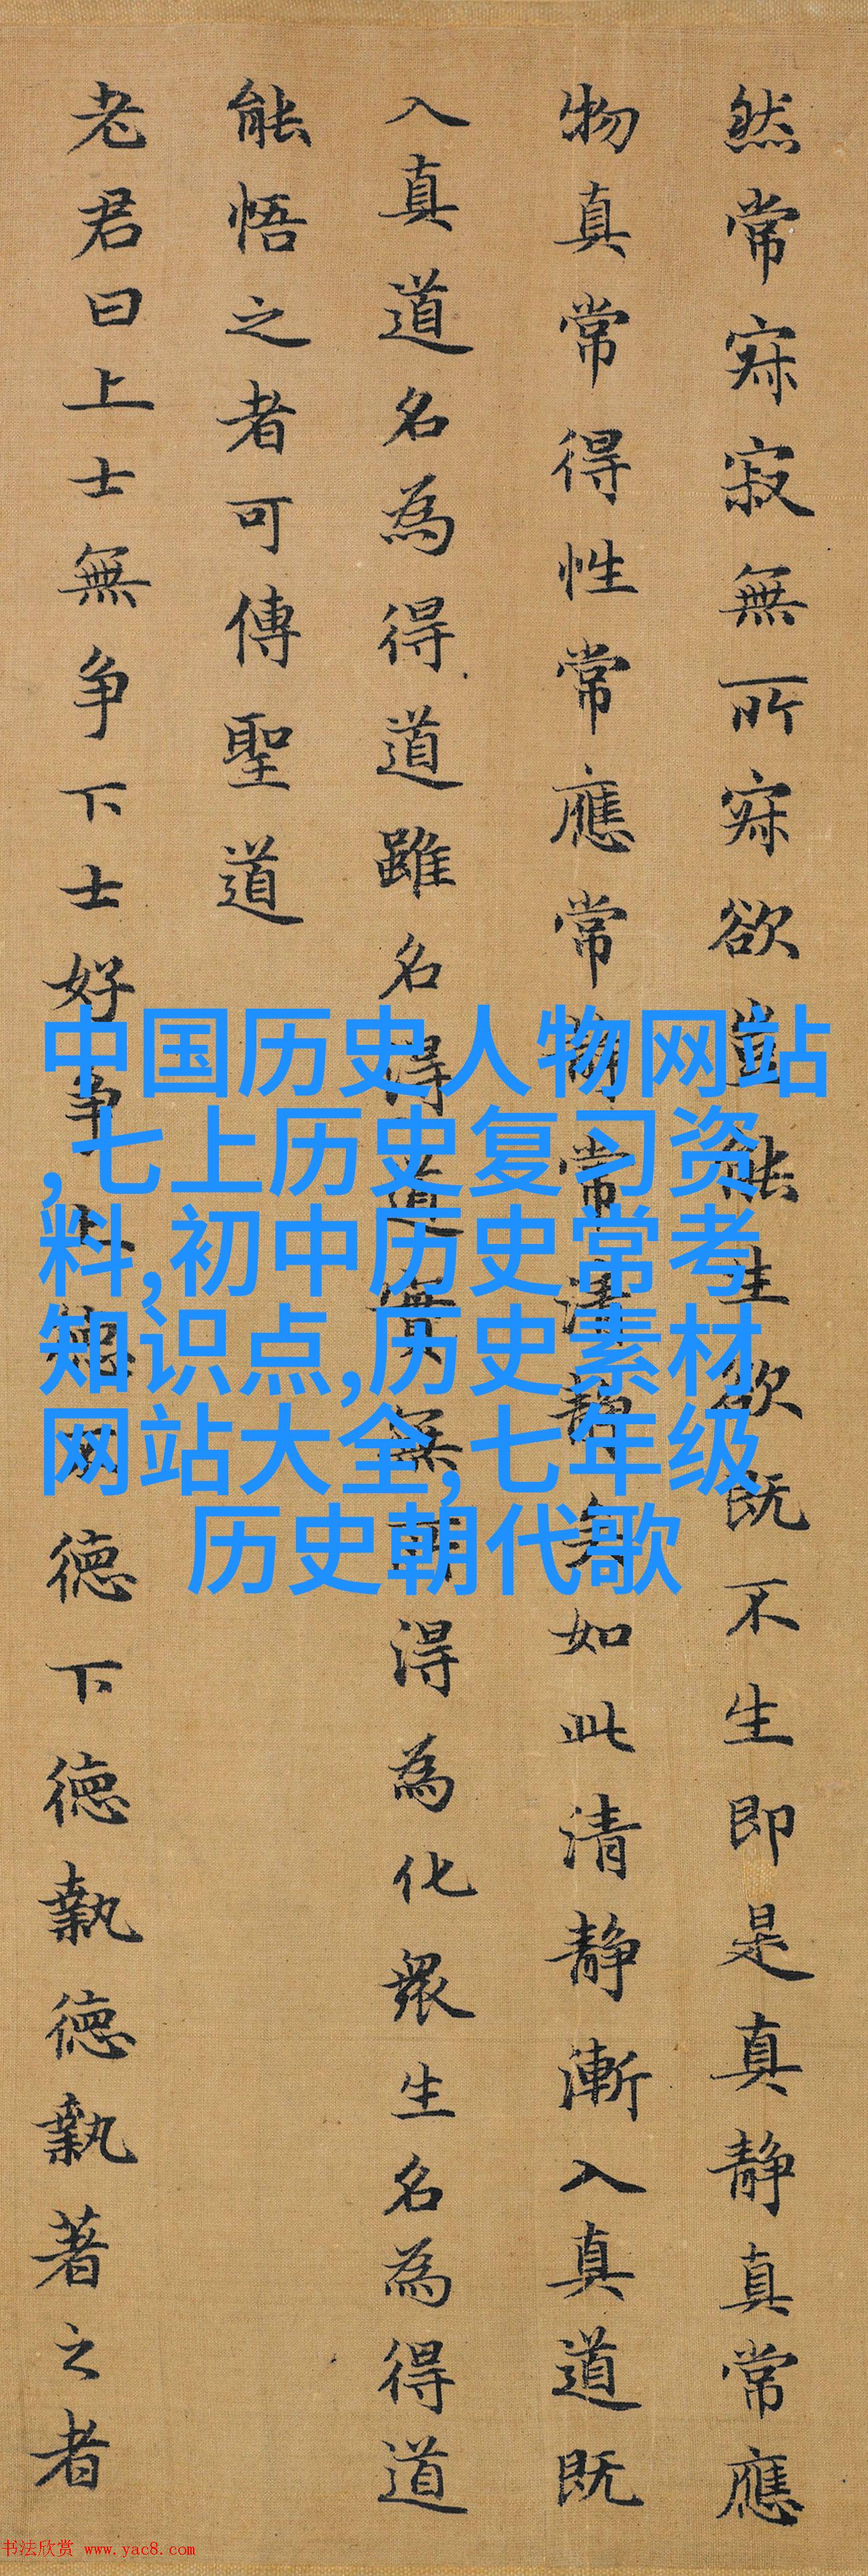 然常寂寂無所寂欲豈能生欲既不生即是真静真常應
物真常得性常應常静常清静矣如此清静漸入真道既
入真道名為得道雖名得道實無所得為化衆生名為得道
能悟之者可傳聖道
老君曰上士無争下士好争上德不德下德執德執著之者
中国历史人物网站
,七上历史复习资
料,初中历史常考
知识点,历史素材
网站大全,七年级
历史朝代歌
书法欣赏 www.yac8.com